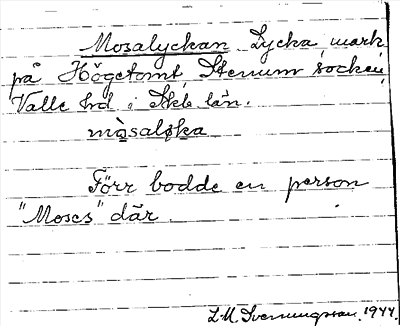 Mosalyckan Lycka, mark
på Högetomt, Stenum socken,
Valle hd i Skb. län.
mòsaløka
Förr bodde en person
"Moses" där.
L.M. Svenungsson. 1944.